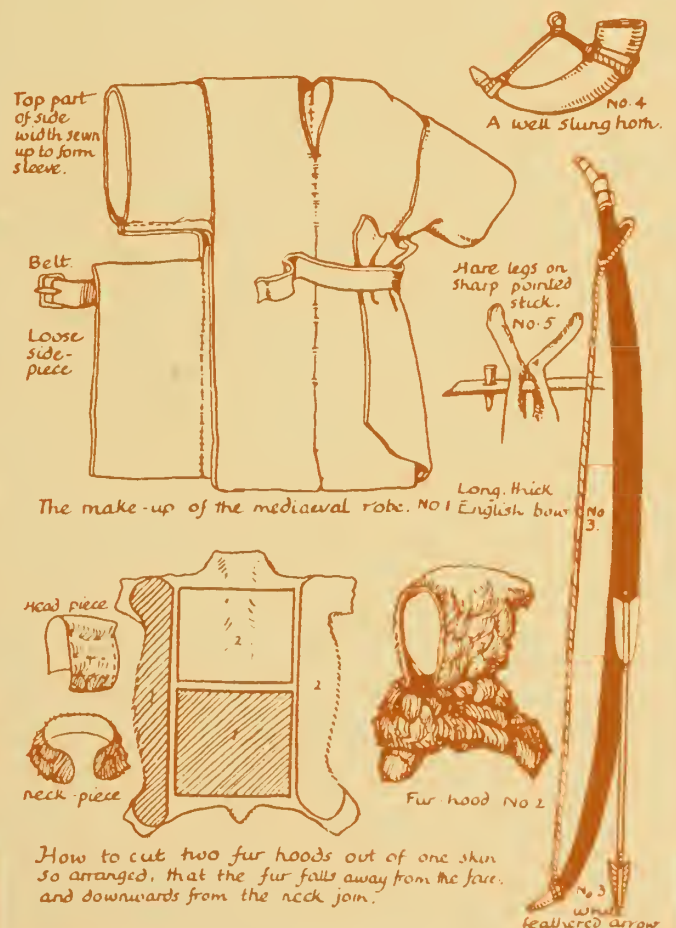 Top part
of side
width sewn
up to form
sleeve.
No. 4
A well slung horn.
Belt.
Loose
side-
piece
Hare legs on
sharp pointed
stick.
No. 5
The make-up of the mediaeval robe. No 1
Long, thick
English bow
No
3.
Head piece
neck-piece
1
2
1
2
Fur hood No 2
How to cut two fur hoods out of one skin
so arranged, that the fur falls away from the face,
and downwards from the neck join.
No 3
feathered arrow